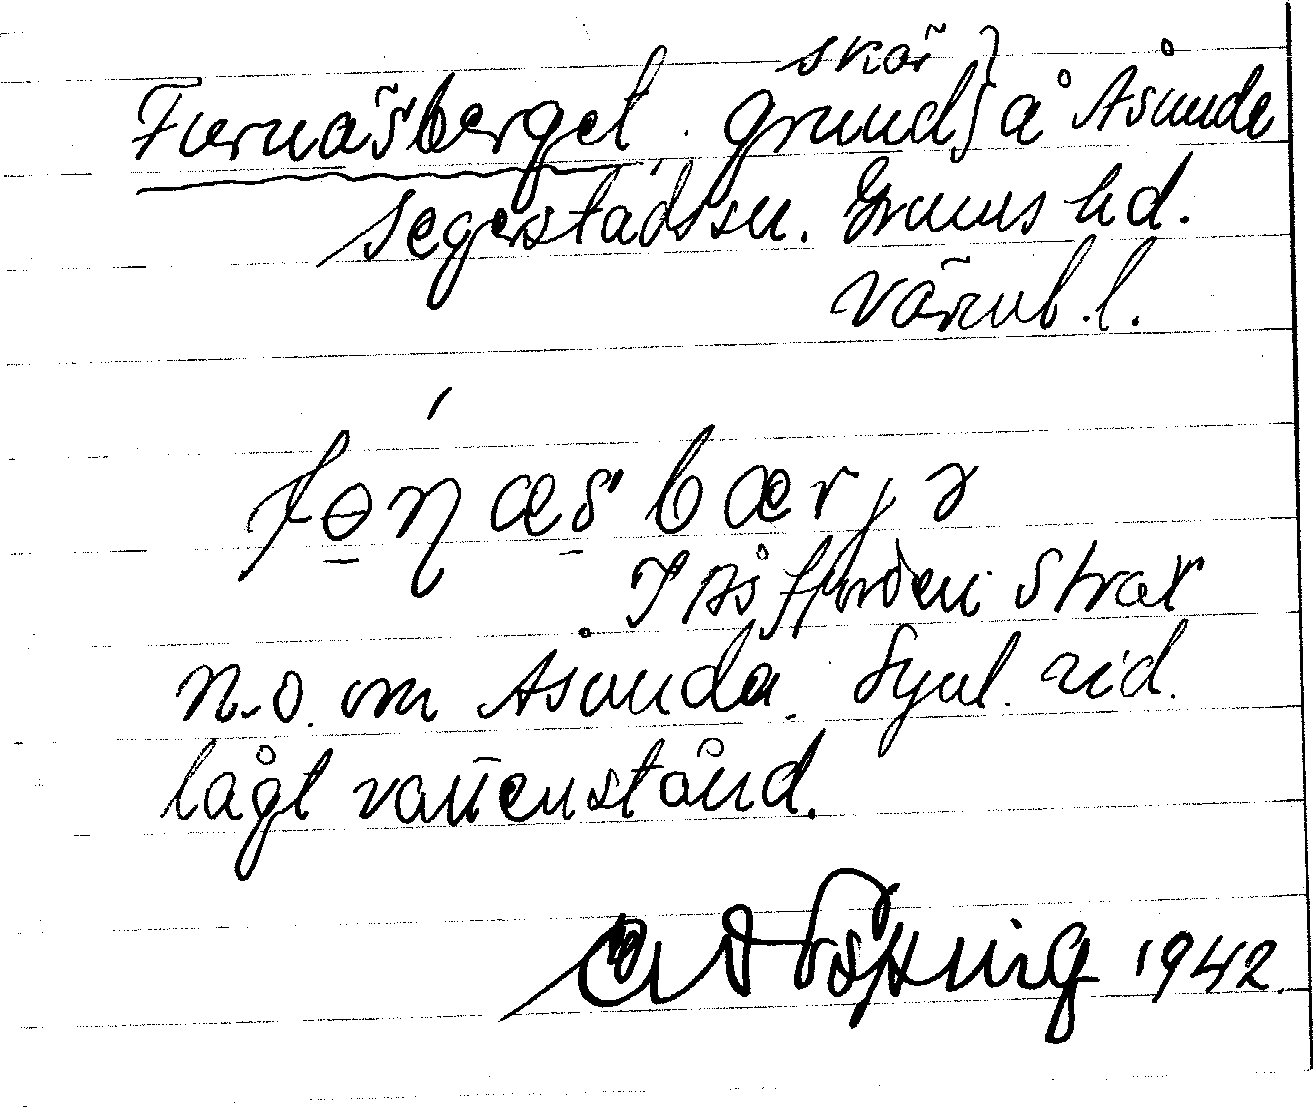 skär }
Furnäsberget. grund } å Åsunda
Segerstadssn. Grums hd.
Värml. l.
fɵɳæsbærjɤ
I Åsfjorden strax
n.o. om Åsunda. Synl. vid
lågt vattenstånd.
1942.